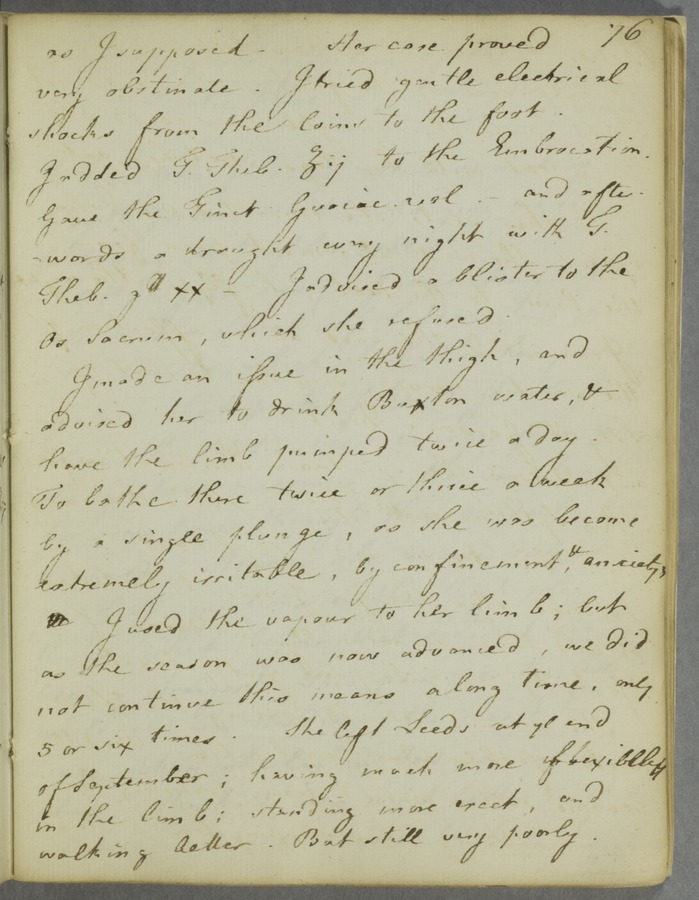 76
as I supposed - Her case proved
very obstinate. I tried gentle electrical
shocks from the loins to the foot.
I added T. Theb. ʒij to the Embrocation.
Gave the Tinct Guaiac. vol - and after-
-wards a draught every night with T.
Theb. gtt xx - I advised a blister to the
Os Sacrum, which she refused.
I made an issue in the thigh, and
advised her to drink Buxton water, &
have the limb pumped twice a day.
To bathe there twice or thrice a week
by a single plunge, as she was become
extremely irritable, by confinement & anxiety,
I used the vapour to her limb; but
as the season was now advanced, we did
not continue this means along time, only
5 or six times. She left Leeds at ye end
of September; having much more flexibility
in the limb; standing more erect, and
walking better. But still very poorly.